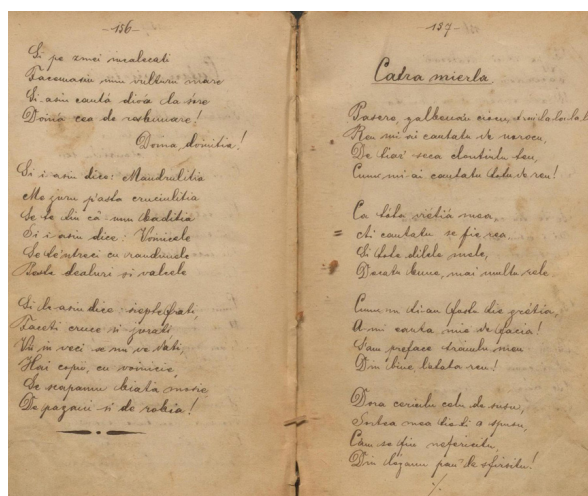 -156-
Si pe zmei incalecati
Facemasiu unu vulturu mare
Si asiu canta diva la sore
Doina cea de resbunare!
Doina, doinitia!
Si i asiu dice: Mandrulitia
Me giuru pasta cruciulitia
Se te tiu ca unu baditia
Si i asiu dice: Voinicele
Se te'ntreci cu randunele
Peste dealuri si valcele
Si le asiu dice: siepte frati,
Faceti cruce si jurati
Va in veci a nu ve dati,
Hai copii, cu voinicie,
Se scapamu biata mosie
De pagani si de robia!
-157-
Catra mierla
Pasere, galbena'n ciocu,
Reu mi ai cantatu de norocu,
De ti ai seca
Cumu mi ai cantatu totu de reu!
Ca tota vietia mea,
Ai cantatu se fie rea,
Si tote dilele mele,
Decatu bune, mai multu rele.
Cumu
A mi canta mie de
S'au preface traiulu meu
Din bine totu reu!
Dora ceriulu celu de susu,
Sortea mea ti a spusu,
Cam se fiu nefericitu,
Din leganu pan' la sfirsitu!
./.